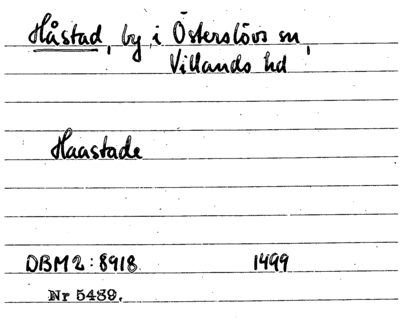 Håstad, by i Österslövs sn,
Villands hd
Haastade
DBM2:8918 1499
Nr 5489.